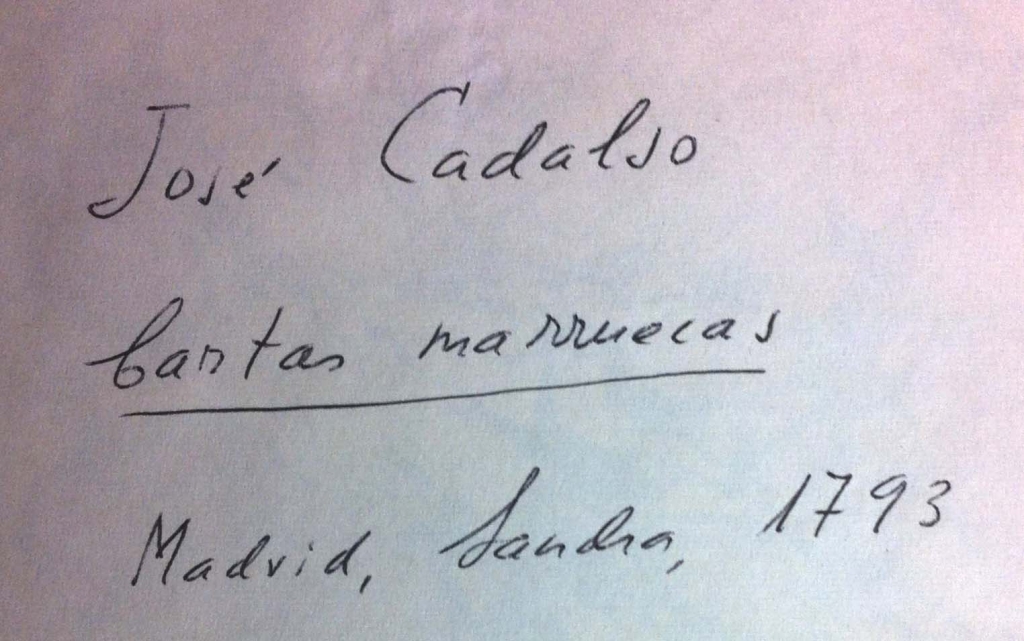 José Cadalso
Cartas marruecas
Madrid, Sancha, 1793